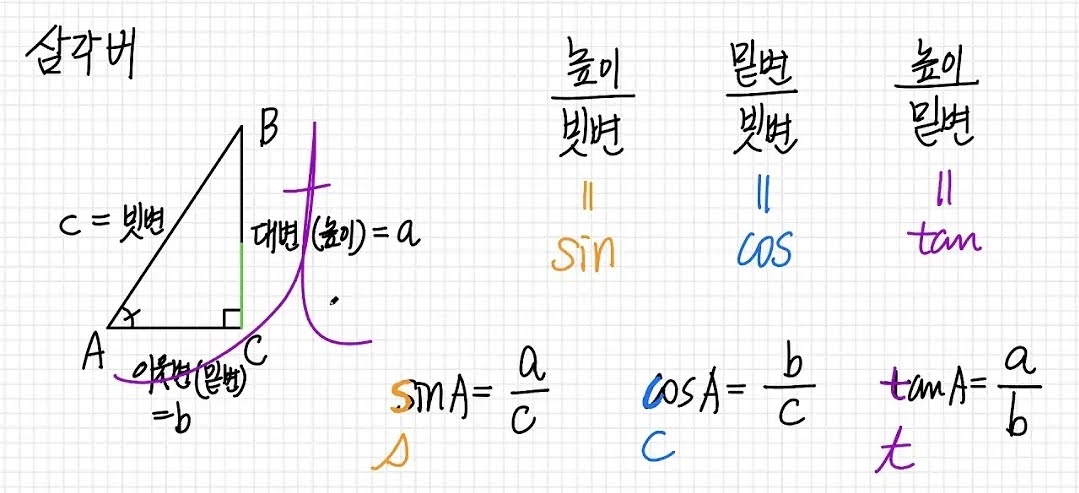 삼각버
B
c = 빗변
대변 (높이) = a
A
C
이웃변(밑변)
= b
높이/빗변
=
sin
밑변/빗변
=
cos
높이/밑변
=
tan
sinA = a/c
s
cosA = b/c
c
tanA = a/b
t